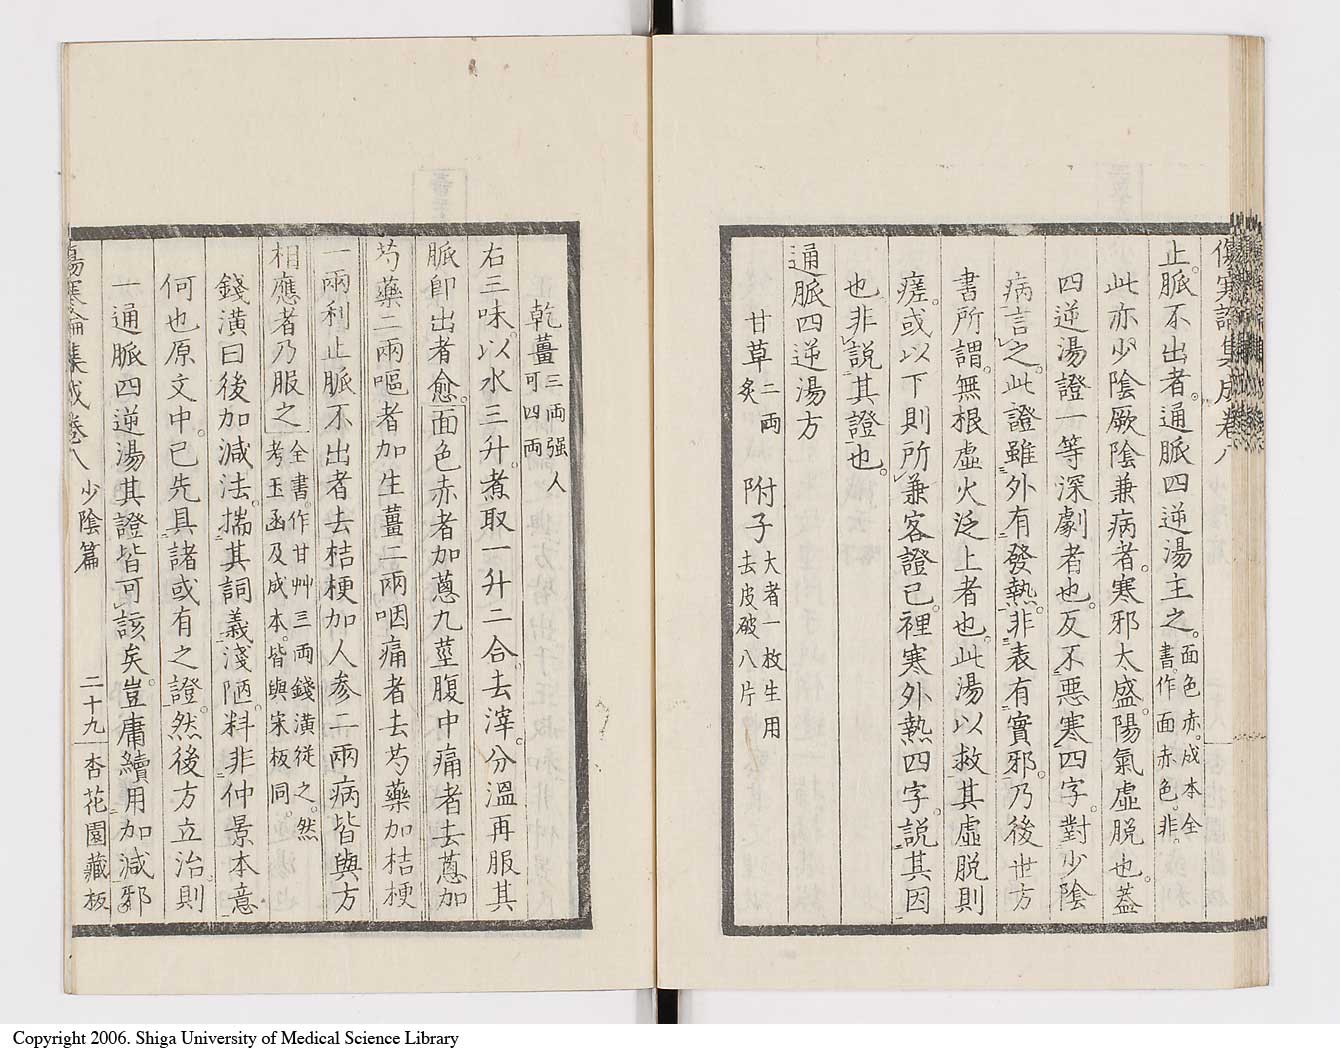 傷寒論集成卷八
止。脈不出者。通脈四逆湯主之。面色赤。成本全書。作面赤色。非。
此亦少陰厥陰兼病者。寒邪太盛。陽氣虛脫也。蓋
四逆湯證一等深劇者也。反不惡寒四字。對少陰
病言之。此證雖外有發熱。非表有實邪。乃後世方
書所謂。無根虛火泛上者也。此湯以救其虛脫則
瘥。或以下則所兼客證已。裡寒外熱四字。說其因
也。非說其證也。
通脈四逆湯方
甘草二兩炙 附子大者一枚生用去皮破八片
乾薑三兩。强人可四兩
右三味。以水三升。煮取一升二合。去滓。分溫再服其
脈卽出者愈。面色赤者加蔥九莖腹中痛者去蔥加
芍藥二兩嘔者加生薑二兩咽痛者去芍藥加桔梗
一兩利止脈不出者去桔梗加人參二兩病皆與方
相應者乃服之全書。作甘艸三兩錢潢從之。然考玉函及成本。皆與宋板同。
錢潢曰後加減法。揣其詞義淺陋。料非仲景本意
何也原文中。已先具諸或有之證。然後方立治。則
一通脈四逆湯其證皆可該矣。豈庸續用加減邪。
傷寒論集成卷八 少陰篇 二十九 杏花園藏板
Copyright 2006. Shiga University of Medical Science Library